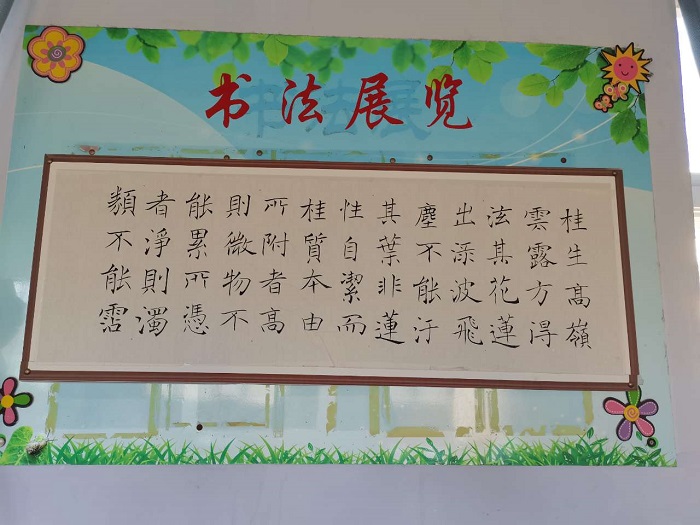 书法展览
桂生高嶺
雲露方得
泫其花蓮
出渌波飛
塵不能汙
其葉非蓮
性自潔而
桂質本由
所附者高
則微物不
能累所憑
者淨則濁
類不能霑